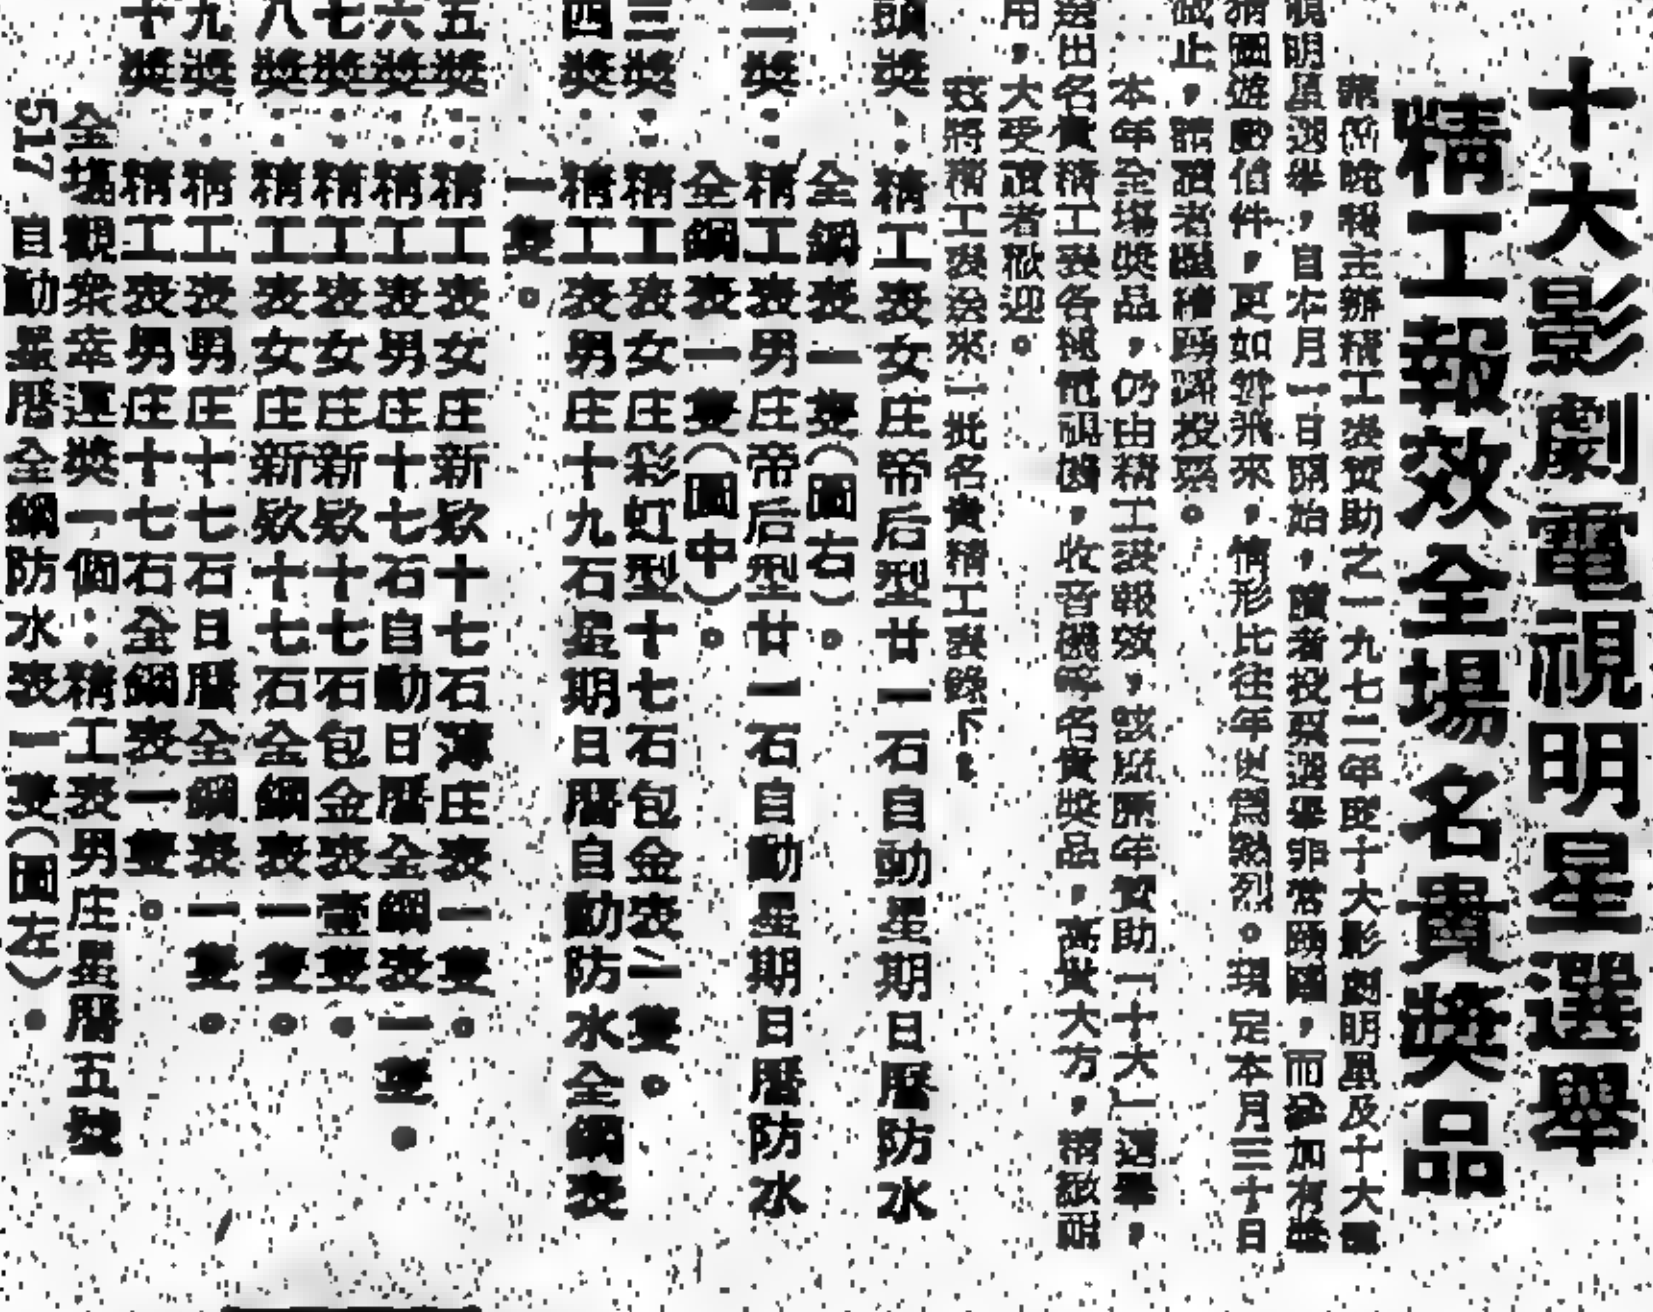 十大影劇電視明星選舉
精工報效全場名貴獎品
晚報主辦精工表贊助之一九七二年度十大影劇明星及十大電
視明星選舉，自本月一日開始，讀者投票選舉非常踴躍，而參加有獎
猜圖遊戲信件，更如雪片飛來，情形比往年更為熱烈。現定本月三十日
截止，請讀者繼續踴躍投票。
本年全場獎品，仍由精工錶報效，該所年贊助「十大」選舉，
送出名貴精工表各種電視機，收音機等名貴獎品，高貴大方，精緻耐
用，大受讀者歡迎。
茲將精工表送來一批名貴精工表錄下：
頭獎：精工表女庄帝后型廿一石自動星期日曆防水
全鋼表一隻（圖右）。
二獎：精工表男庄帝后型廿一石自動星期日曆防水
全鋼表一隻（圖中）。
三獎：精工表女庄彩虹型十七石包金表一隻。
四獎：精工表男庄十九石星期日曆自動防水全鋼表
一隻。
五獎：精工表女庄新欵十七石薄庄表一隻。
六獎：精工表男庄十七石自動日曆全鋼表一隻。
七獎：精工表女庄新欵十七石包金表壹隻。
八獎：精工表女庄新欵十七石全鋼表一隻。
九獎：精工表男庄十七石日曆全鋼表一隻。
十獎：精工表男庄十七石全鋼表一隻。
全場觀衆幸運獎一個：精工表男庄星曆五號
517 自動星曆全鋼防水表一隻（圖左）。